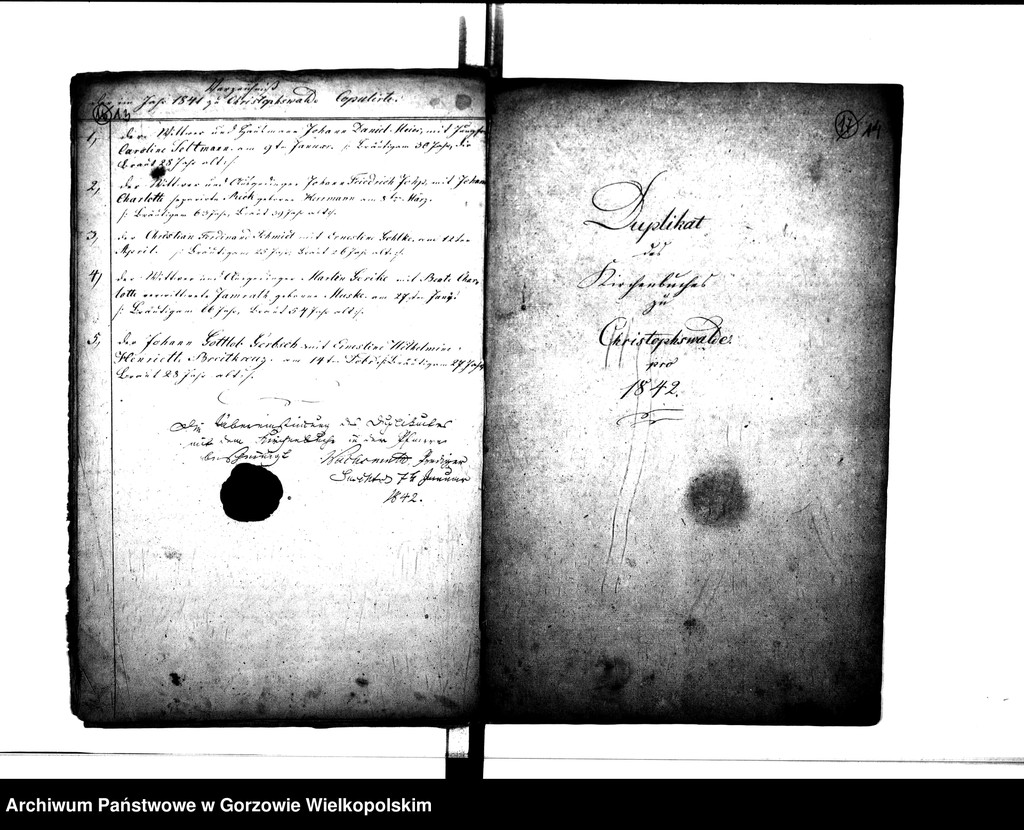 Verzeichniß
der im Jahr 1841 zu Christophswalde Copulirten.
16 13
1, der Wittwer und Johann Daniel mit
Caroline Soltmann am 9ten Januar /: Bräutigam 30 Jahr, die
Braut 28 Jahr alt :/.
2, der Wittwer und Ausgedinger Johann Friedrich mit
Charlotte separirte Rick geborne Hermann am 8ten März.
/: Bräutigam 63 Jahr, Braut 39 Jahr alt :/.
3, der Christian Ferdinand Schmidt mit Ernestine Gohlke am 12ten
April. /: Bräutigam 23 Jahr, Braut 26 Jahr alt :/.
4, der Wittwer und Ausgedinger Martin Gericke mit Beate Char-
lotte verwittwete geborne Muske am 27ten
/: Bräutigam 66 Jahr, Braut 54 Jahr alt :/.
5, der Johann Gottlob mit Ernestine Wilhelmine
Henriette Breitkreuz. am 14ten Bräutigam 27 Jahr,
Braut 23 Jahr alt :/.
Die Uebereinstimmung des Duplikates
mit dem Kirchenbuche in der Pfarre
bescheinigt Prediger
7t Januar
1842.
17 14
Duplikat
des
Kirchenbuches
zu
Christophswalde
pro
1842.
Archiwum Państwowe w Gorzowie Wielkopolskim